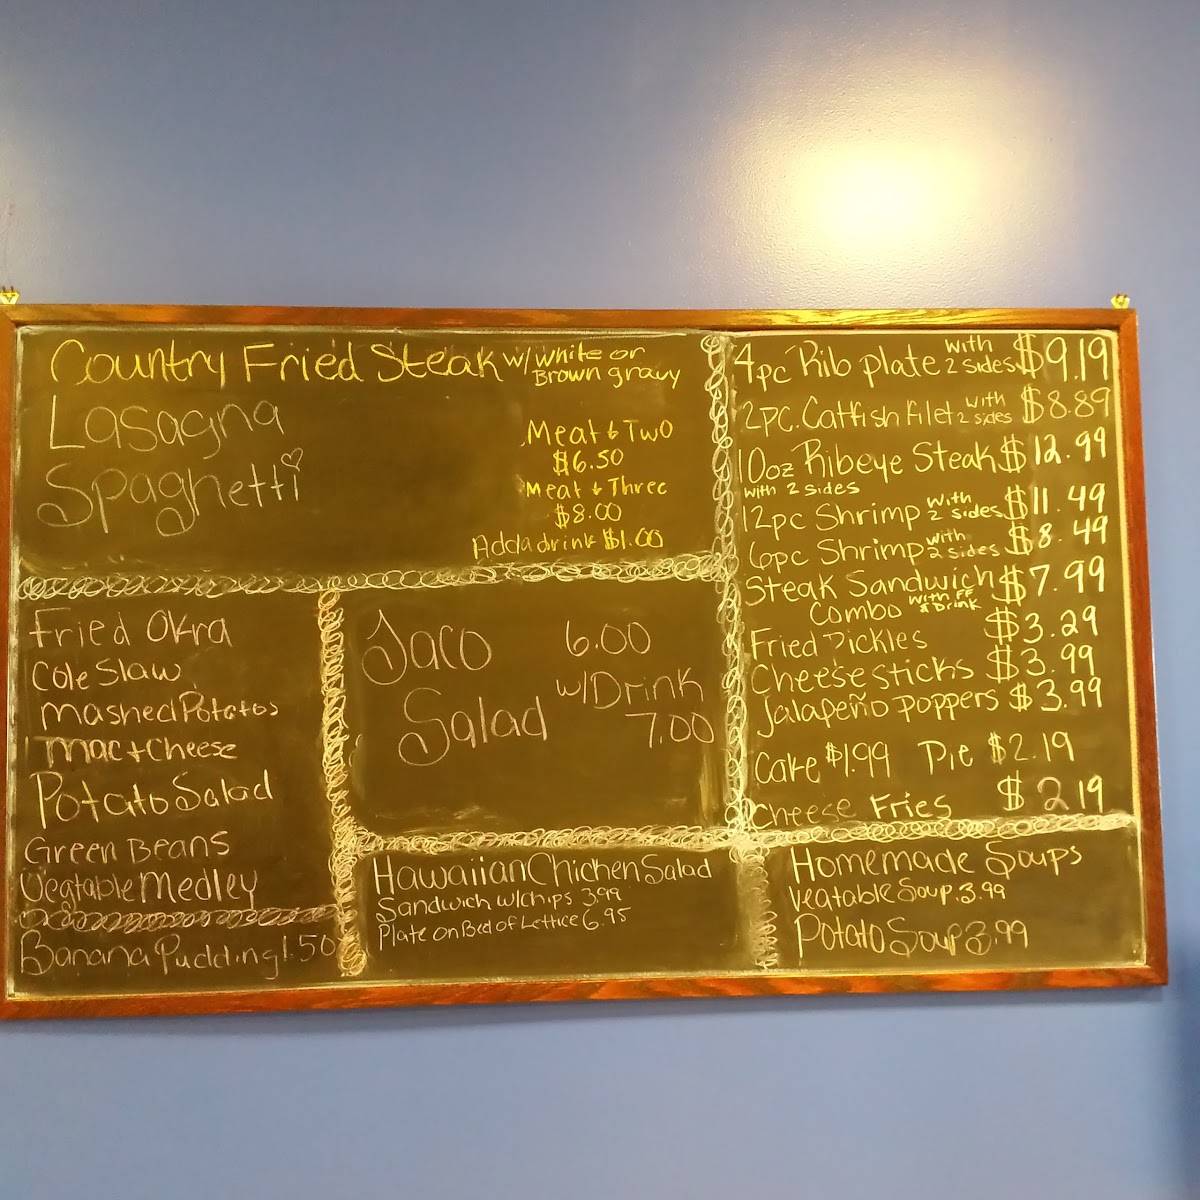 Country Fried Steak w/ white or
Brown gravy
Lasagna
Spaghetti
Meat & Two
$6.50
Meat & Three
$8.00
Add a drink $1.00
Fried Okra
Cole Slaw
Mashed Potatos
Mac + Cheese
Potato Salad
Green Beans
Vegtable Medley
Banana Pudding 1.50
Taco 6.00
Salad w/ Drink
7.00
Hawaiian Chicken Salad
Sandwich w/chips 3.99
Plate on Bed of Lettice 6.95
4pc Rib plate with 2 sides $9.19
2pc. Catfish Filet with 2 sides $8.89
10oz Ribeye Steak $12.99
with 2 sides
12pc Shrimp with 2 sides $11.49
6pc Shrimp with 2 sides $8.49
Steak Sandwich $7.99
Combo with FF & Drink
Fried Pickles $3.29
Cheese sticks $3.99
Jalapeño Poppers $3.99
Cake $1.99 Pie $2.19
Cheese Fries $2.19
Homemade Soups
Veatable Soup 3.99
Potato Soup 3.99